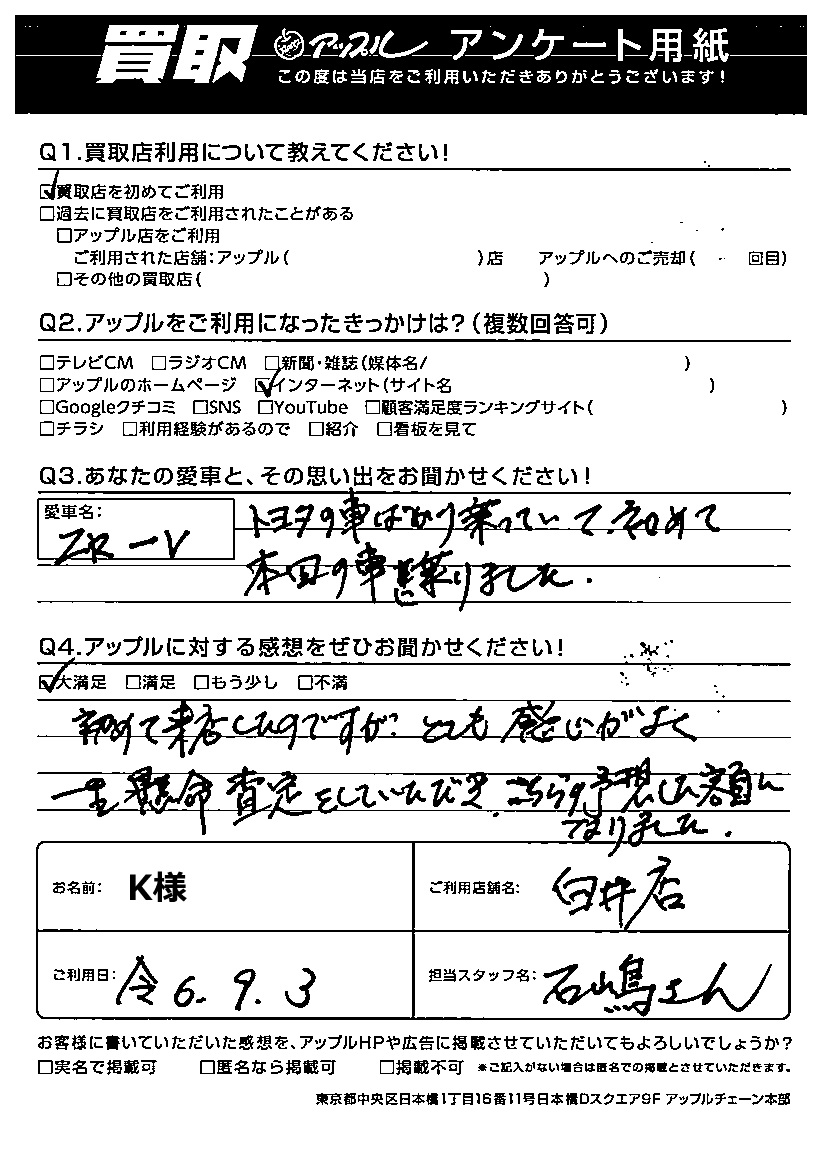 買取 アップル アンケート用紙
この度は当店をご利用いただきありがとうございます!
Q1.買取店利用について教えてください!
☑買取店を初めてご利用
□過去に買取店をご利用されたことがある
□アップル店をご利用
ご利用された店舗:アップル( )店 アップルへのご売却( 回目)
□その他の買取店( )
Q2.アップルをご利用になったきっかけは?(複数回答可)
□テレビCM □ラジオCM □新聞・雑誌(媒体名/ )
□アップルのホームページ ☑インターネット(サイト名 )
□Googleクチコミ □SNS □YouTube □顧客満足度ランキングサイト( )
□チラシ □利用経験があるので □紹介 □看板を見て
Q3.あなたの愛車と、その思い出をお聞かせください!
愛車名:
ZR-V
トヨタの車ばかり乗っていて、初めて
本田の車に乗りました.
Q4.アップルに対する感想をぜひお聞かせください!
☑大満足 □満足 □もう少し □不満
初めて来店したのですが、とても感じがよく
一生懸命査定をしていただき、こちらの予想した額に
なりました.
お名前: K様 ご利用店舗名: 白井店
ご利用日: 令6.9.3 担当スタッフ名: 石嶋さん
お客様に書いていただいた感想を、アップルHPや広告に掲載させていただいてもよろしいでしょうか?
□実名で掲載可 □匿名なら掲載可 □掲載不可 *ご記入がない場合は匿名での掲載とさせていただきます。
東京都中央区日本橋1丁目16番11号日本橋Dスクエア9F アップルチェーン本部